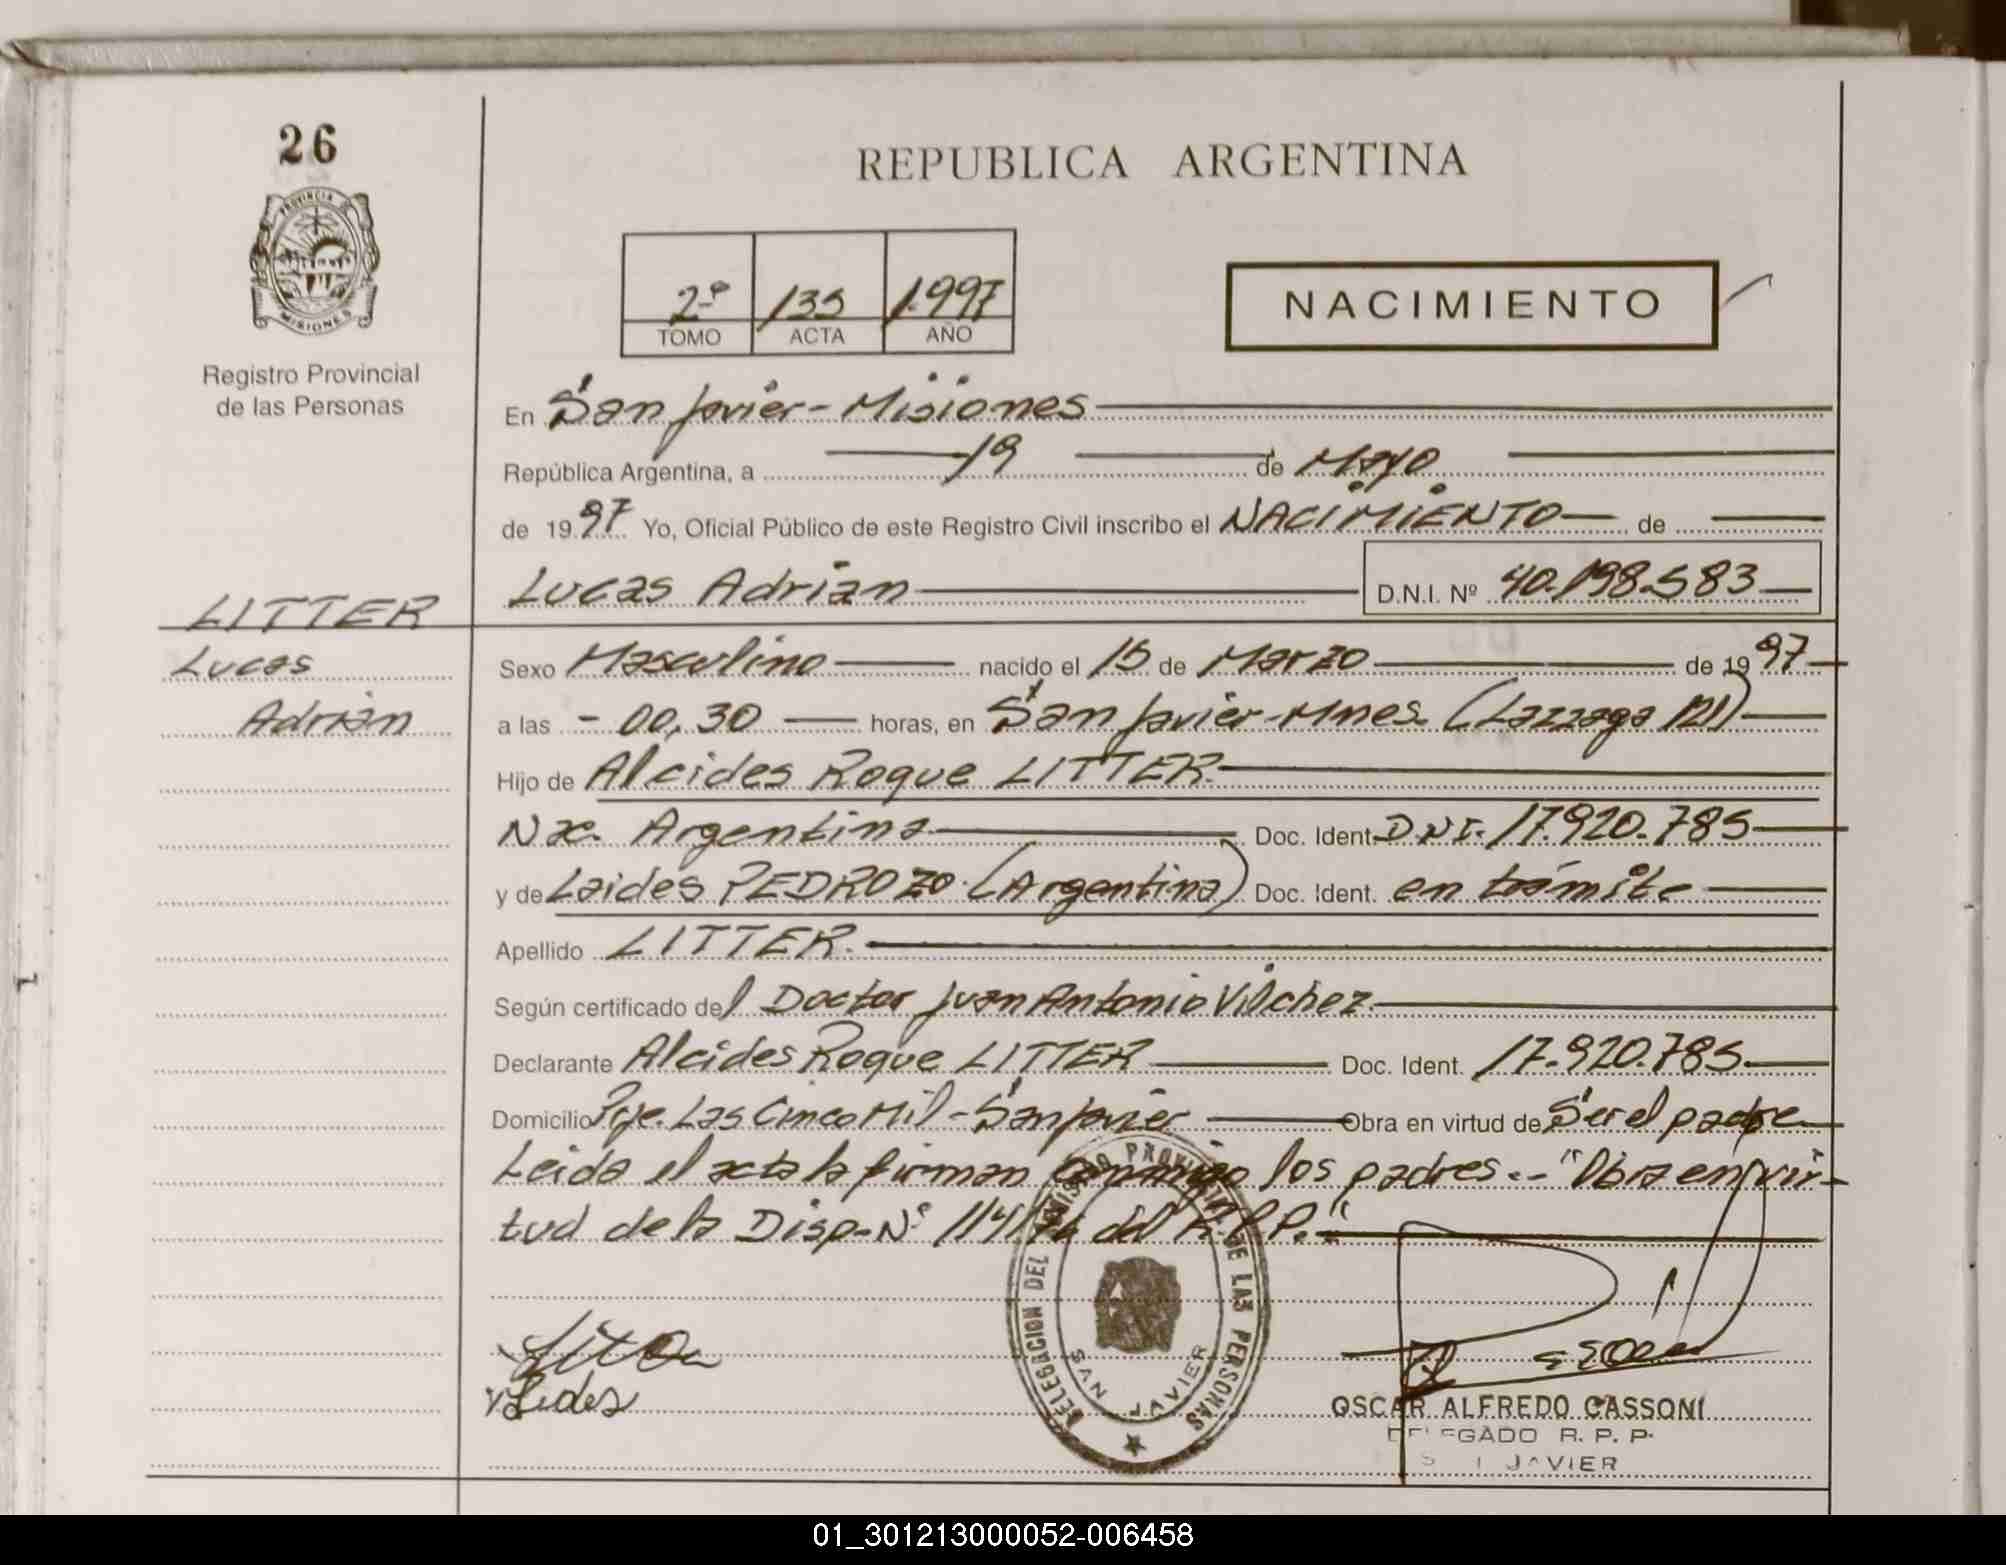 26
PROVINCIA
MISIONES
Registro Provincial
de las Personas
REPUBLICA ARGENTINA
2º 135 1.997
TOMO ACTA AÑO
NACIMIENTO
En San Javier - Misiones
República Argentina, a 19 de Mayo
de 1997 Yo, Oficial Público de este Registro Civil inscribo el NACIMIENTO de
Lucas Adrián D.N.I. Nº 40.198.583
LITTER
Lucas
Adrián
Sexo Masculino nacido el 15 de Marzo de 1997
a las - 00,30 horas, en San Javier - Mnes. (Lazzaga 121)
Hijo de Alcides Roque LITTER.
Nac. Argentina Doc. Ident. D.N.I. 17.920.785
y de Laides PEDROZO. (Argentina) Doc. Ident. en trámite
Apellido LITTER.
Según certificado del Doctor Juan Antonio Vilchez
Declarante Alcides Roque LITTER Doc. Ident. 17.920.785
Domicilio Pje. Las Cinco Mil - San Javier Obra en virtud de Ser el padre
Leida el acta la firman conmigo los padres.- "Obra en vir-
tud de la Disp. Nº 114/ del R.P.P."
DELEGACION DEL REGISTRO PROVINCIAL DE LAS PERSONAS
SAN JAVIER
OSCAR ALFREDO CASSONI
DELEGADO R. P. P.
JAVIER
01_301213000052-006458